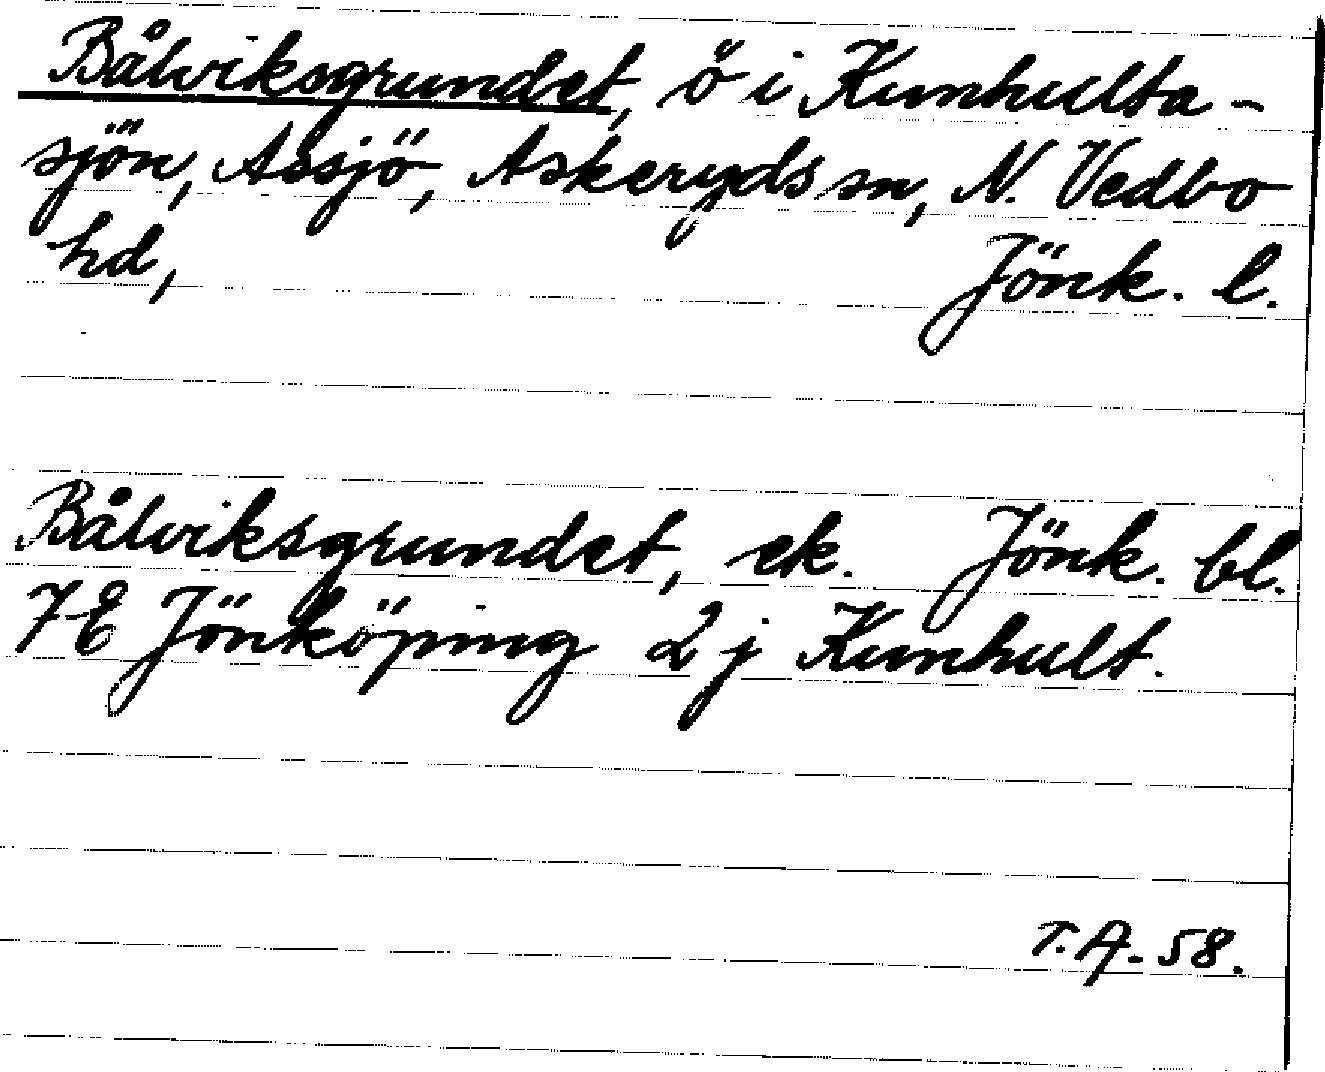 Bålviksgrundet, ö i Kumhulta-
sjön, Assjö, Askeryds sn, N. Vedbo
hd, Jönk. l.
Bålviksgrundet, ek. Jönk. bl.
7E Jönköping 2j Kumhult.
T. A. 58.